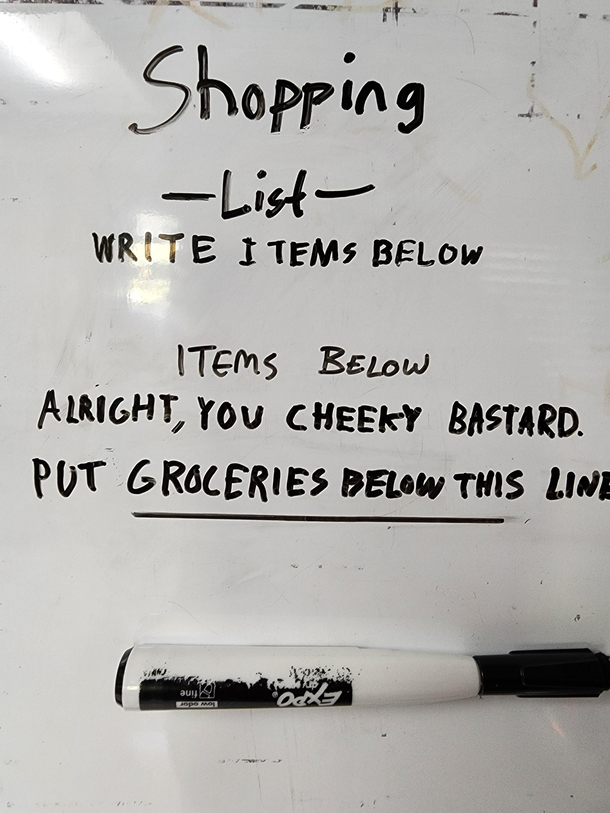 Shopping
-List-
WRITE ITEMS BELOW
ITEMS BELOW
ALRIGHT, YOU CHEEKY BASTARD.
PUT GROCERIES BELOW THIS LINE
EXPO®
low odor
fine